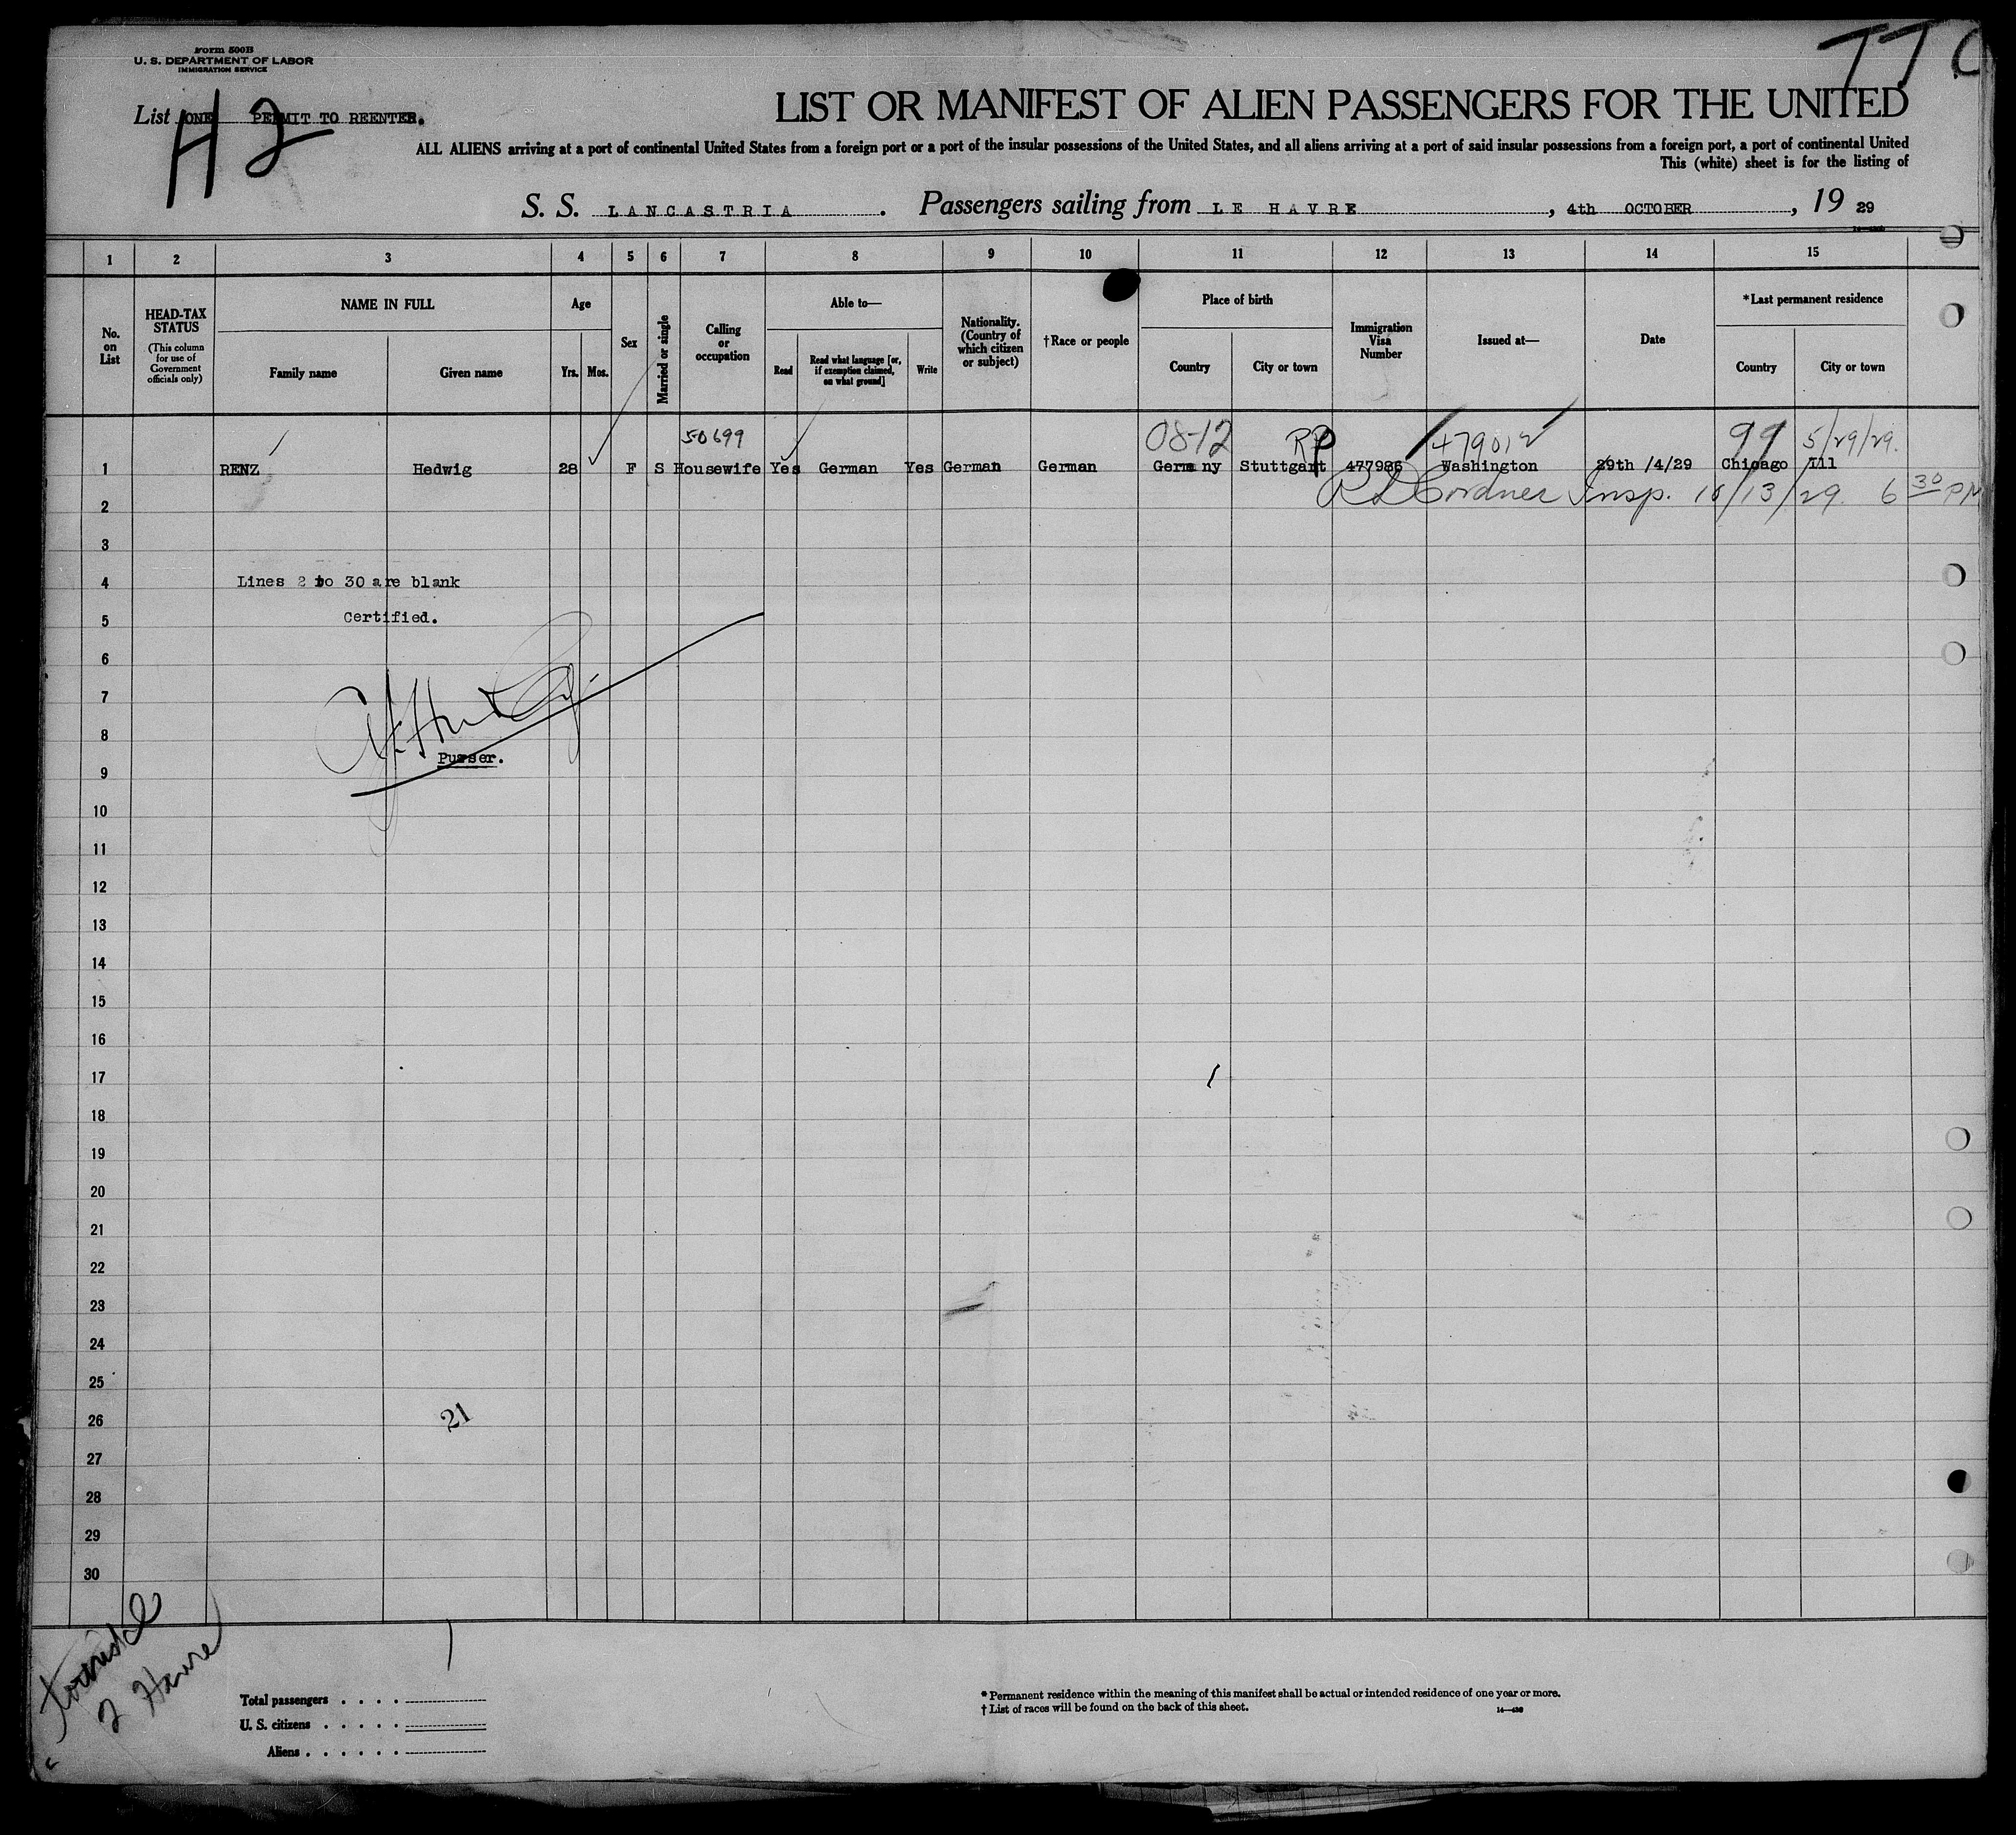 Form 500B
U. S. DEPARTMENT OF LABOR
IMMIGRATION SERVICE
List ONE PERMIT TO REENTER.
H 2
LIST OR MANIFEST OF ALIEN PASSENGERS FOR THE UNITED
ALL ALIENS arriving at a port of continental United States from a foreign port or a port of the insular possessions of the United States, and all aliens arriving at a port of said insular possessions from a foreign port, a port of continental United
This (white) sheet is for the listing of
S. S. LANCASTRIA. Passengers sailing from LE HAVRE, 4th OCTOBER, 19 29
1 2 3 4 5 6 7 8 9 10 11 12 13 14 15
No. on List
HEAD-TAX STATUS
(This column for use of Government officials only)
NAME IN FULL
Family name Given name
Age
Yrs. Mos.
Sex
Married or single
Calling or occupation
Able to—
Read
Read what language [or, if exemption claimed, on what ground]
Write
Nationality. (Country of which citizen or subject)
†Race or people
Place of birth
Country City or town
Immigration Visa Number
Issued at—
Date
*Last permanent residence
Country City or town
50699 08-12 RP 479012 99 5/29/29.
1 RENZ Hedwig 28 F S Housewife Yes German Yes German German Germany Stuttgart 477986 Washington 29th /4/29 Chicago Ill
2 Cordner Insp. 10/13/29 6 30 PM
3
4 Lines 2 to 30 are blank
5 Certified.
6
7
8
Purser.
9
10
11
12
13
14
15
16
17
18
19
20
21
22
23
24
25
26 21
27
28
29
30
2 Havre
Total passengers . . . .
U. S. citizens . . . . .
Aliens . . . . . .
* Permanent residence within the meaning of this manifest shall be actual or intended residence of one year or more.
† List of races will be found on the back of this sheet.